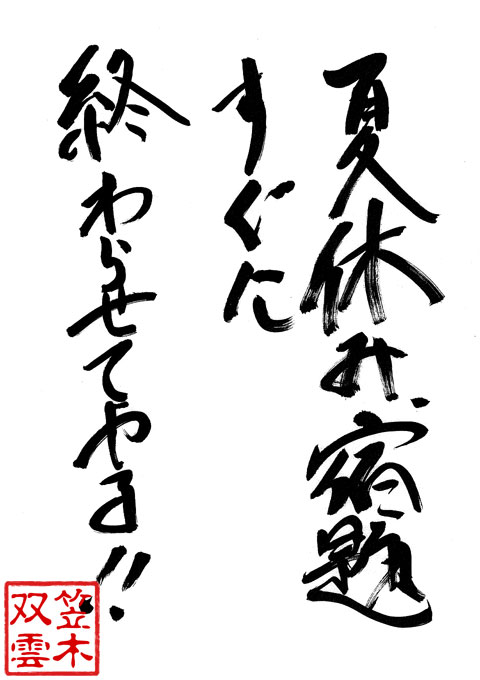 夏休み、宿題
すぐに
終わらせてやる!!
笠木
双雲